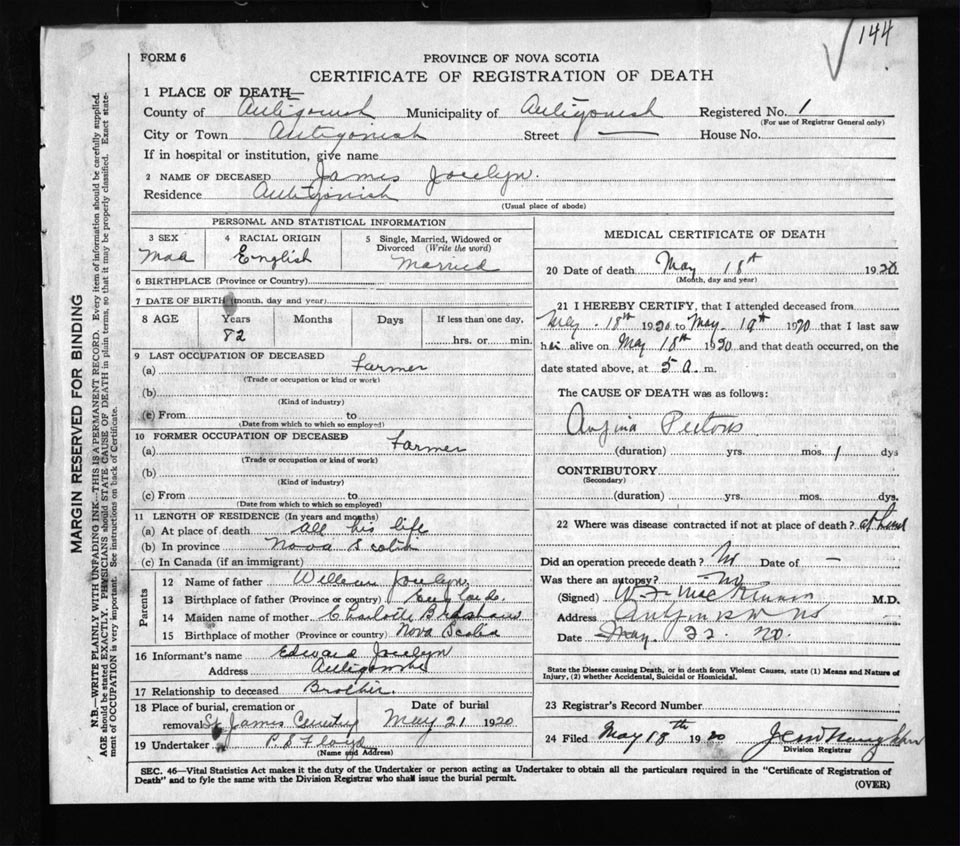 144
FORM 6
PROVINCE OF NOVA SCOTIA
CERTIFICATE OF REGISTRATION OF DEATH
1 PLACE OF DEATH—
County of Antigonish Municipality of Antigonish Registered No. 1
(For use of Registrar General only)
City or Town Antigonish Street — House No.
If in hospital or institution, give name
2 NAME OF DECEASED James Jocelyn.
Residence Antigonish
(Usual place of abode)
PERSONAL AND STATISTICAL INFORMATION
3 SEX 4 RACIAL ORIGIN 5 Single, Married, Widowed or
Divorced (Write the word)
English Married
6 BIRTHPLACE (Province or Country)
7 DATE OF BIRTH (month, day and year)
8 AGE Years Months Days If less than one day,
82 hrs. or min.
9 LAST OCCUPATION OF DECEASED
(a) Farmer
(Trade or occupation or kind or work)
(b)
(Kind of industry)
(c) From to
(Date from which to which so employed)
10 FORMER OCCUPATION OF DECEASED
(a) Farmer
(Trade or occupation or kind of work)
(b)
(Kind of industry)
(c) From to
(Date from which to which so employed)
11 LENGTH OF RESIDENCE (In years and months)
(a) At place of death all his life
(b) In province Nova Scotia
(c) In Canada (if an immigrant)
Parents
12 Name of father William Jocelyn
13 Birthplace of father (Province or country) England.
14 Maiden name of mother Charlotte Bradshaw
15 Birthplace of mother (Province or country) Nova Scotia
16 Informant's name Edward Jocelyn
Address Antigonish
17 Relationship to deceased Brother.
18 Place of burial, cremation or Date of burial
removal St. James Cemetery May 21 1920
19 Undertaker P. S. Floyd
(Name and Address)
MEDICAL CERTIFICATE OF DEATH
20 Date of death May 18th 1920
(Month, day and year)
21 I HEREBY CERTIFY, that I attended deceased from
18th 1920 to May 19th 1920 that I last saw
him alive on May 18th 1920 and that death occurred, on the
date stated above, at 5 a. m.
The CAUSE OF DEATH was as follows:
Angina Pectoris
(duration) yrs. mos. 1 dys
CONTRIBUTORY
(Secondary)
(duration) yrs. mos. dys.
22 Where was disease contracted if not at place of death? at
Did an operation precede death? No Date of —
Was there an autopsy? No
(Signed) W. F. MacKinnon M.D.
Address Antigonish NS
Date May 22. 20.
State the Disease causing Death, or in death from Violent Causes, state (1) Means and Nature of
Injury, (2) whether Accidental, Suicidal or Homicidal.
23 Registrar's Record Number
24 Filed May 18th 1920
Division Registrar
SEC. 46—Vital Statistics Act makes it the duty of the Undertaker or person acting as Undertaker to obtain all the particulars required in the "Certificate of Registration of
Death" and to fyle the same with the Division Registrar who shall issue the burial permit.
(OVER)
MARGIN RESERVED FOR BINDING
N.B.—WRITE PLAINLY WITH UNFADING INK—THIS IS A PERMANENT RECORD. Every item of information should be carefully supplied.
AGE should be stated EXACTLY. PHYSICIANS should STATE CAUSE OF DEATH in plain terms, so that it may be properly classified. Exact state-
ment of OCCUPATION is very important. See instructions on back of Certificate.